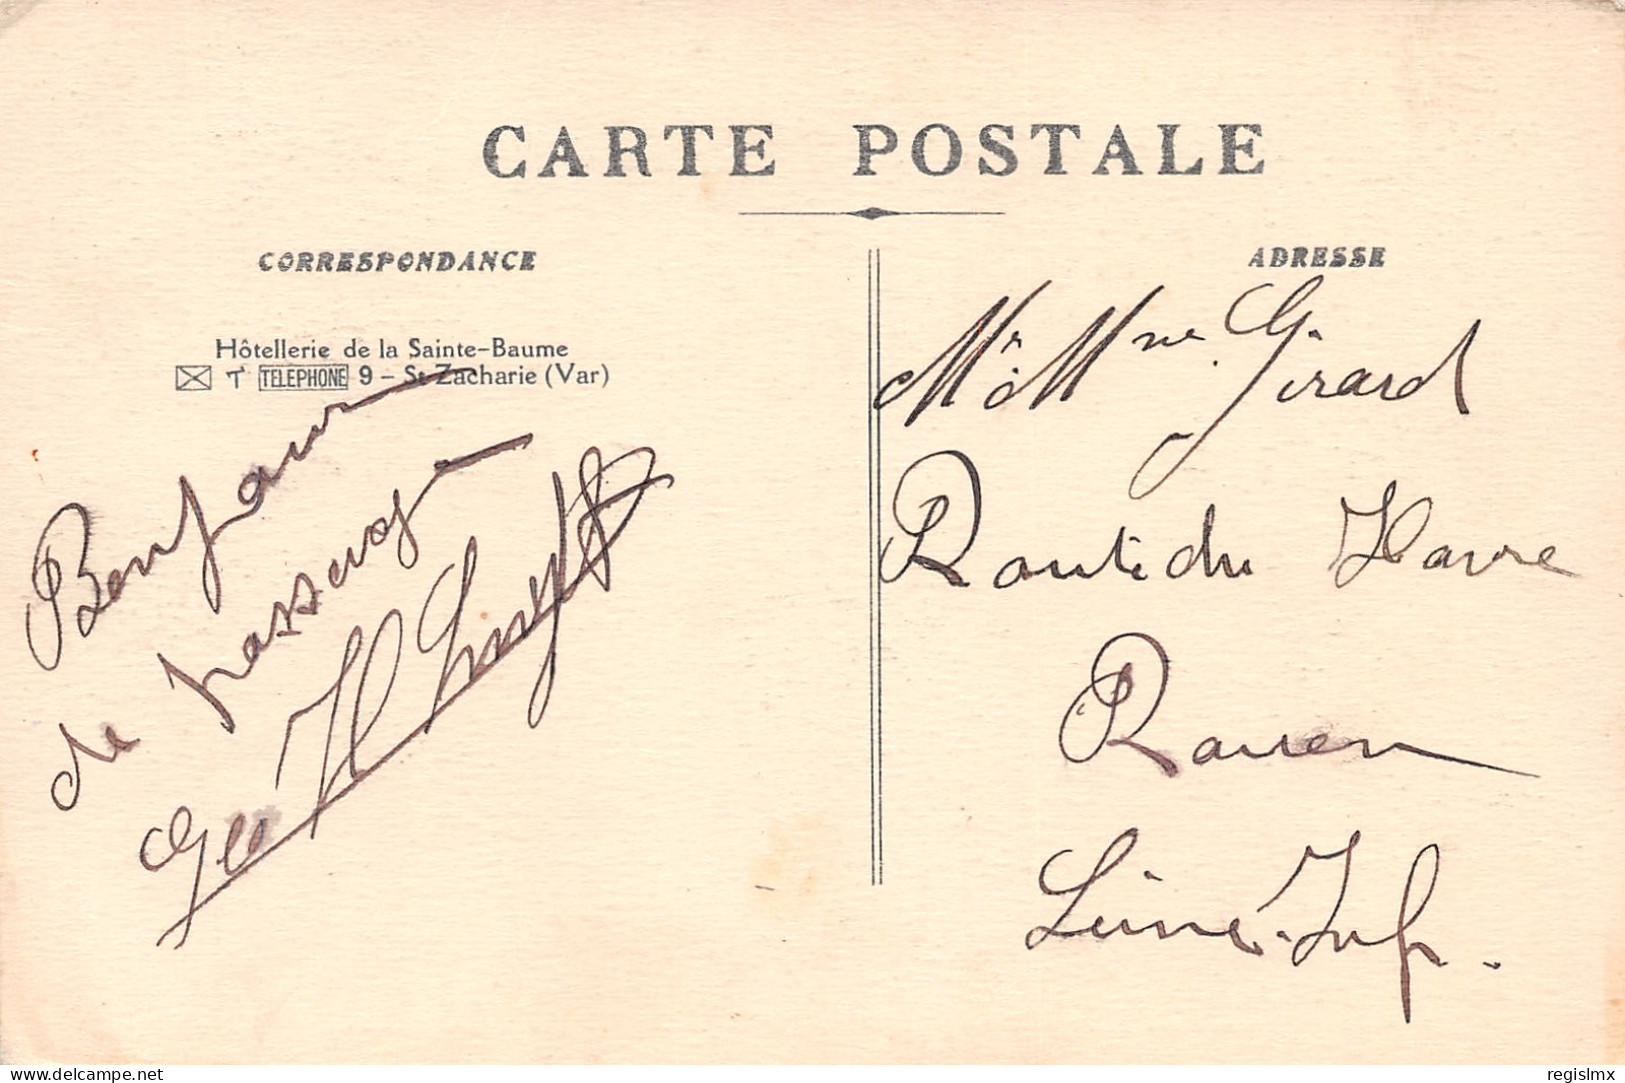 CARTE POSTALE
CORRESPONDANCE
Hôtellerie de la Sainte-Baume
TELEPHONE 9 - St Zacharie (Var)
Bonjour
de passage
Geo H
ADRESSE
Mr & Mme Girard
Route du Havre
Rouen
Seine-Infre.
delcampe.net
regislmx